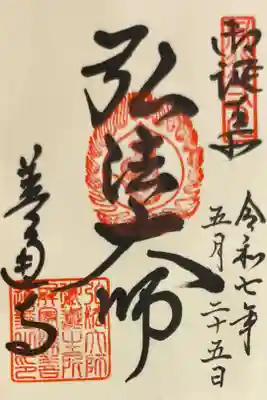 御誕生所
令和七年
五月二十五日
弘法大師
善通寺
弘法大師
御誕生所